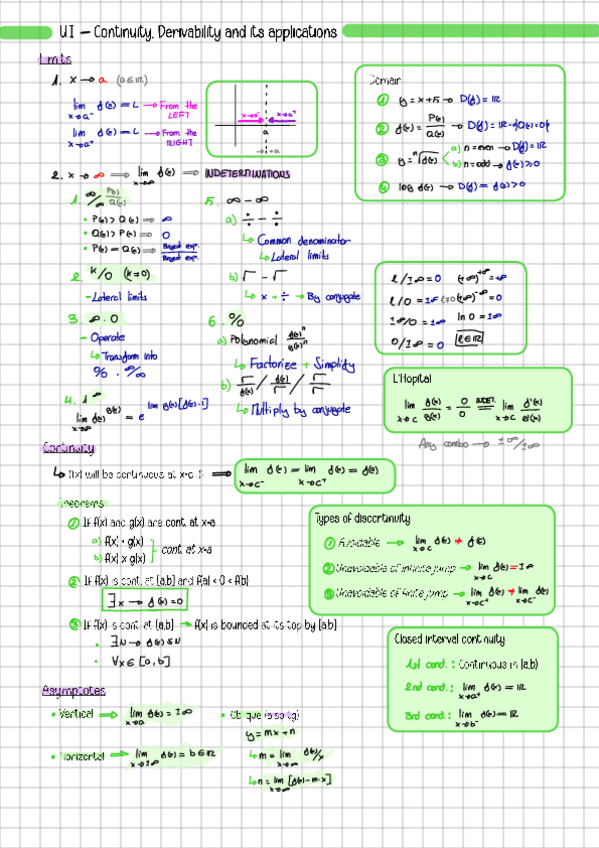 U.I – Continuity, Derivability and its applications
Limits
1. x → a (a∈ℝ)
lim x→a⁻ f(x) = L → From the LEFT
lim x→a⁺ f(x) = L → From the RIGHT
x→a⁻ x→a⁺
a
Domain
① y = x+5 → D(f) = ℝ
② f(x) = P(x)/Q(x) → D(f) = ℝ - {Q(x)=0}
③ y = ⁿ√f(x)
a) n=even → D(f) = ℝ
b) n=odd → f(x) ≥ 0
④ log f(x) → D(f) = f(x) > 0
2. x → ∞ ⟹ lim x→∞ f(x) ⟹ INDETERMINATIONS
1. ∞/∞ P(x)/Q(x)
• P(x) > Q(x) ⟹ ∞
• Q(x) > P(x) ⟹ 0
• P(x) = Q(x) ⟹ Biggest exp./Biggest exp.
2. K/0 (K≠0)
– Lateral limits
3. ∞ · 0
– Operate
↳ Transform into
0/0 · ∞/∞
4. 1^∞
lim x→∞ f(x)^g(x) = e^lim g(x)[f(x)-1]
5. ∞ – ∞
a) ÷ – ÷
↳ Common denominator
↳ Lateral limits
b) √ – √
↳ x + ÷ → By conjugate
6. 0/0
a) Polynomial f(x)ⁿ/g(x)ⁿ
↳ Factorize + Simplify
b) √/f(x) / f(x)/√ / √/√
↳ Multiply by conjugate
l/±∞ = 0 (+∞)^+∞ = +∞
l/0 = ±∞ (+∞)^-∞ = 0
±∞/0 = ±∞ ln 0 = ±∞
0/±∞ = 0 l∈ℝ
L'Hopital
lim x→c f(x)/g(x) = 0/0 INDET. lim x→c f'(x)/g'(x)
Any combo → ±∞/±∞
Continuity
↳ f(x) will be continuous at x=c if ⟹ lim x→c⁻ f(x) = lim x→c⁺ f(x) = f(c)
Theorems
① If f(x) and g(x) are cont. at x=a
a) f(x) + g(x)
b) f(x) x g(x)
cont. at x=a
② If f(x) is cont. at [a,b] and f(a) < 0 < f(b)
∃x → f(x) = 0
③ If f(x) is cont. at [a,b] → f(x) is bounced at its top by [a,b]
• ∃N → f(x) ≤ N
• ∀x ∈ [a,b]
Types of discontinuity
① Avoidable → lim x→c f(x) ≠ f(c)
② Unavoidable of infinite jump → lim x→c f(x) = ±∞
③ Unavoidable of finite jump → lim x→c⁺ f(x) ≠ lim x→c⁻ f(x)
Closed interval continuity
1st cond.: Continuous in (a,b)
2nd cond.: lim x→a⁺ f(x) = ℝ
3rd cond.: lim x→b⁻ f(x) = ℝ
Asymptotes
• Vertical ⟹ lim x→a f(x) = ±∞
• Horizontal ⟹ lim x→±∞ f(x) = b∈ℝ
• Oblique
y = mx + n
↳ m = lim x→∞ f(x)/x
↳ n = lim x→∞ [f(x) - m·x]